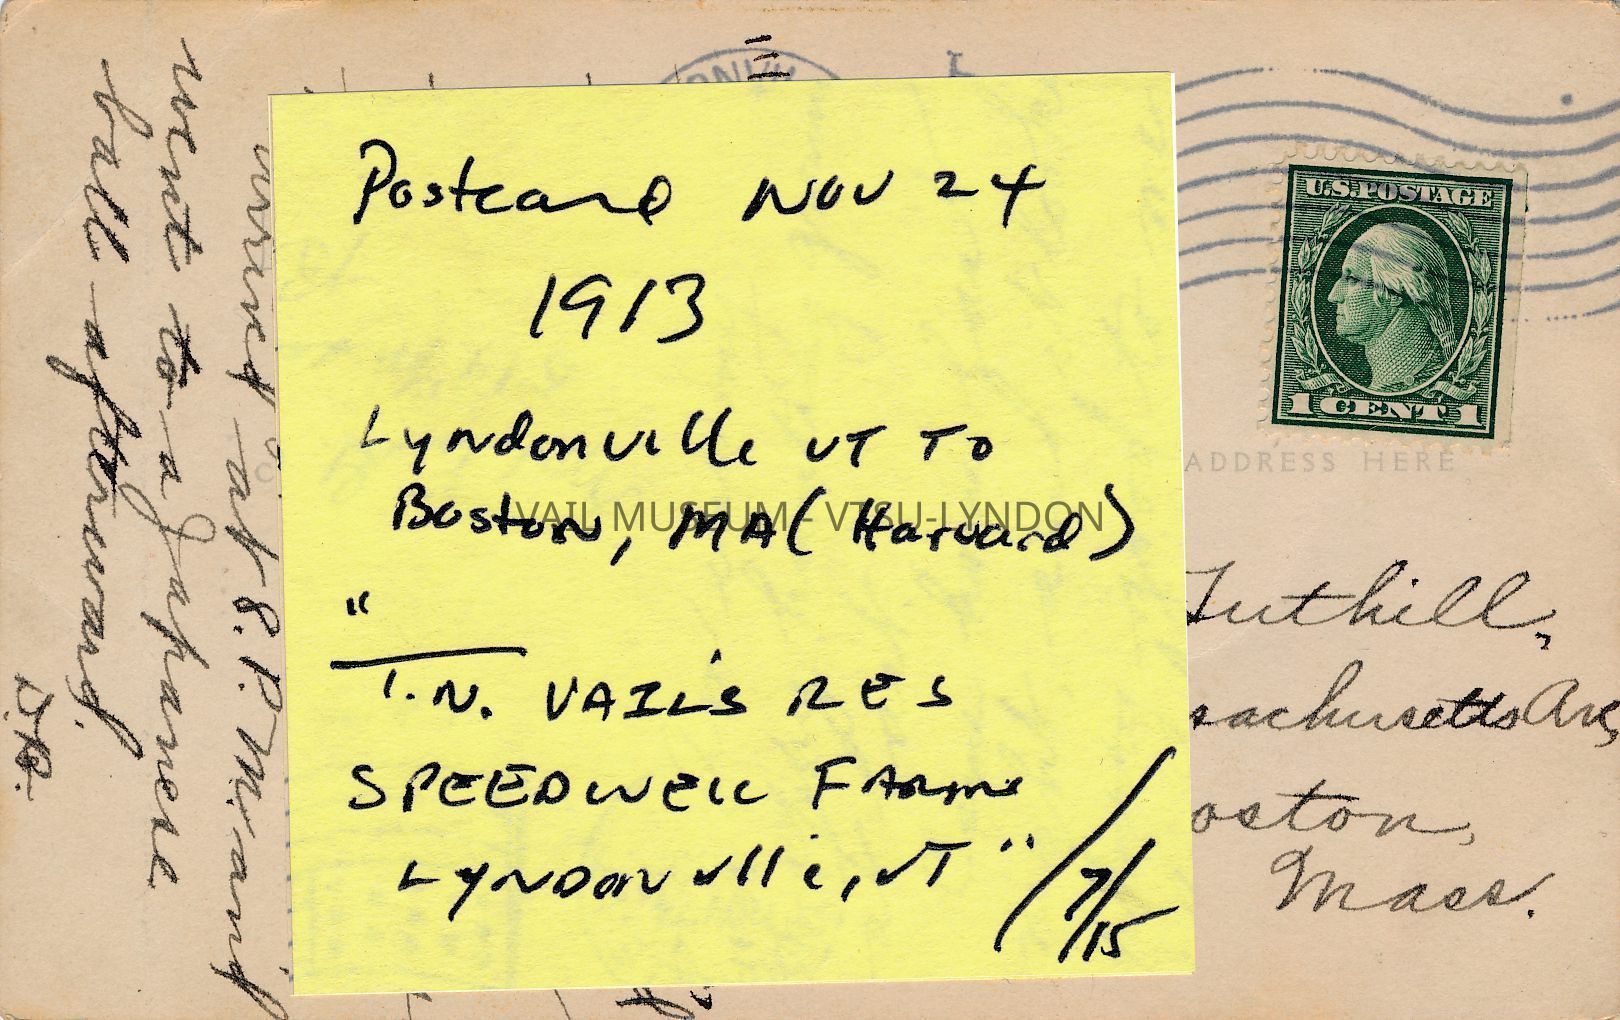 Postcard NOV 24
1913
Lyndonville VT TO
Boston, MA (Harvard)
"
T.N. VAIL'S RES
SPEEDWELL FARMS
LYNDONVILLE, VT " / 7/15
VAIL MUSEUM - VTSU-LYNDON
U.S. POSTAGE
1 CENT 1
ADDRESS HERE
Tuthill,
sachusetts Ave,
oston,
Mass.
at 8. P. M. and
went to a Japanese
ball afterward.